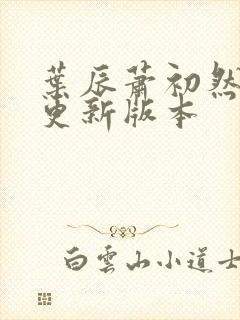 葉辰蕭初然
更新版本
白雲山小道士